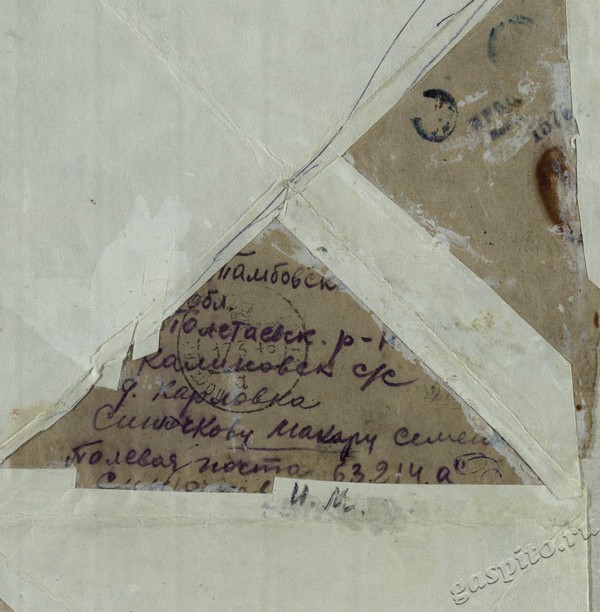 Тамбовск
обл.
Полетаевск. р-н
Калиновск с/с
д. Карповка
Синочкову Макару Семен
Полевая почта 63214.а"
И.М.
1876
gaspito.ru